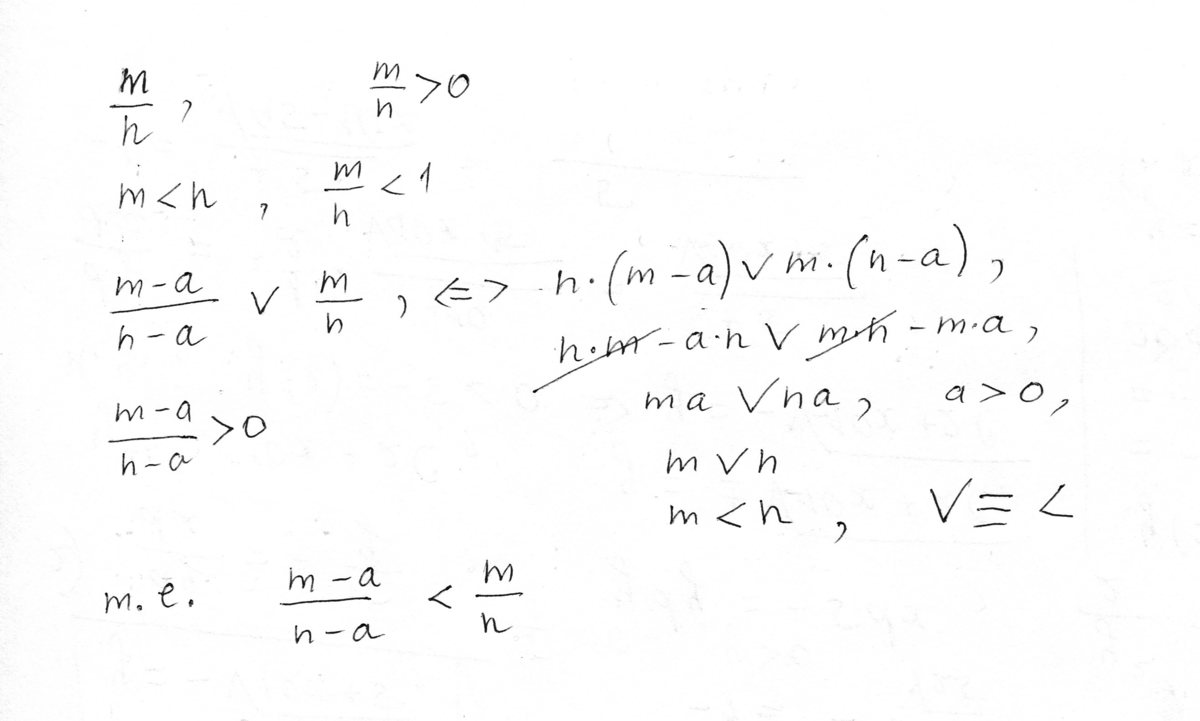 m/n , m/n > 0
m < n , m/n < 1
(m-a)/(n-a) ∨ m/n , <=> n·(m-a) ∨ m·(n-a) ,
n·m - a·n ∨ m·n - m·a ,
(m-a)/(n-a) > 0
ma ∨ na , a > 0 ,
m ∨ n
m < n , ∨ ≡ <
т. е. (m-a)/(n-a) < m/n